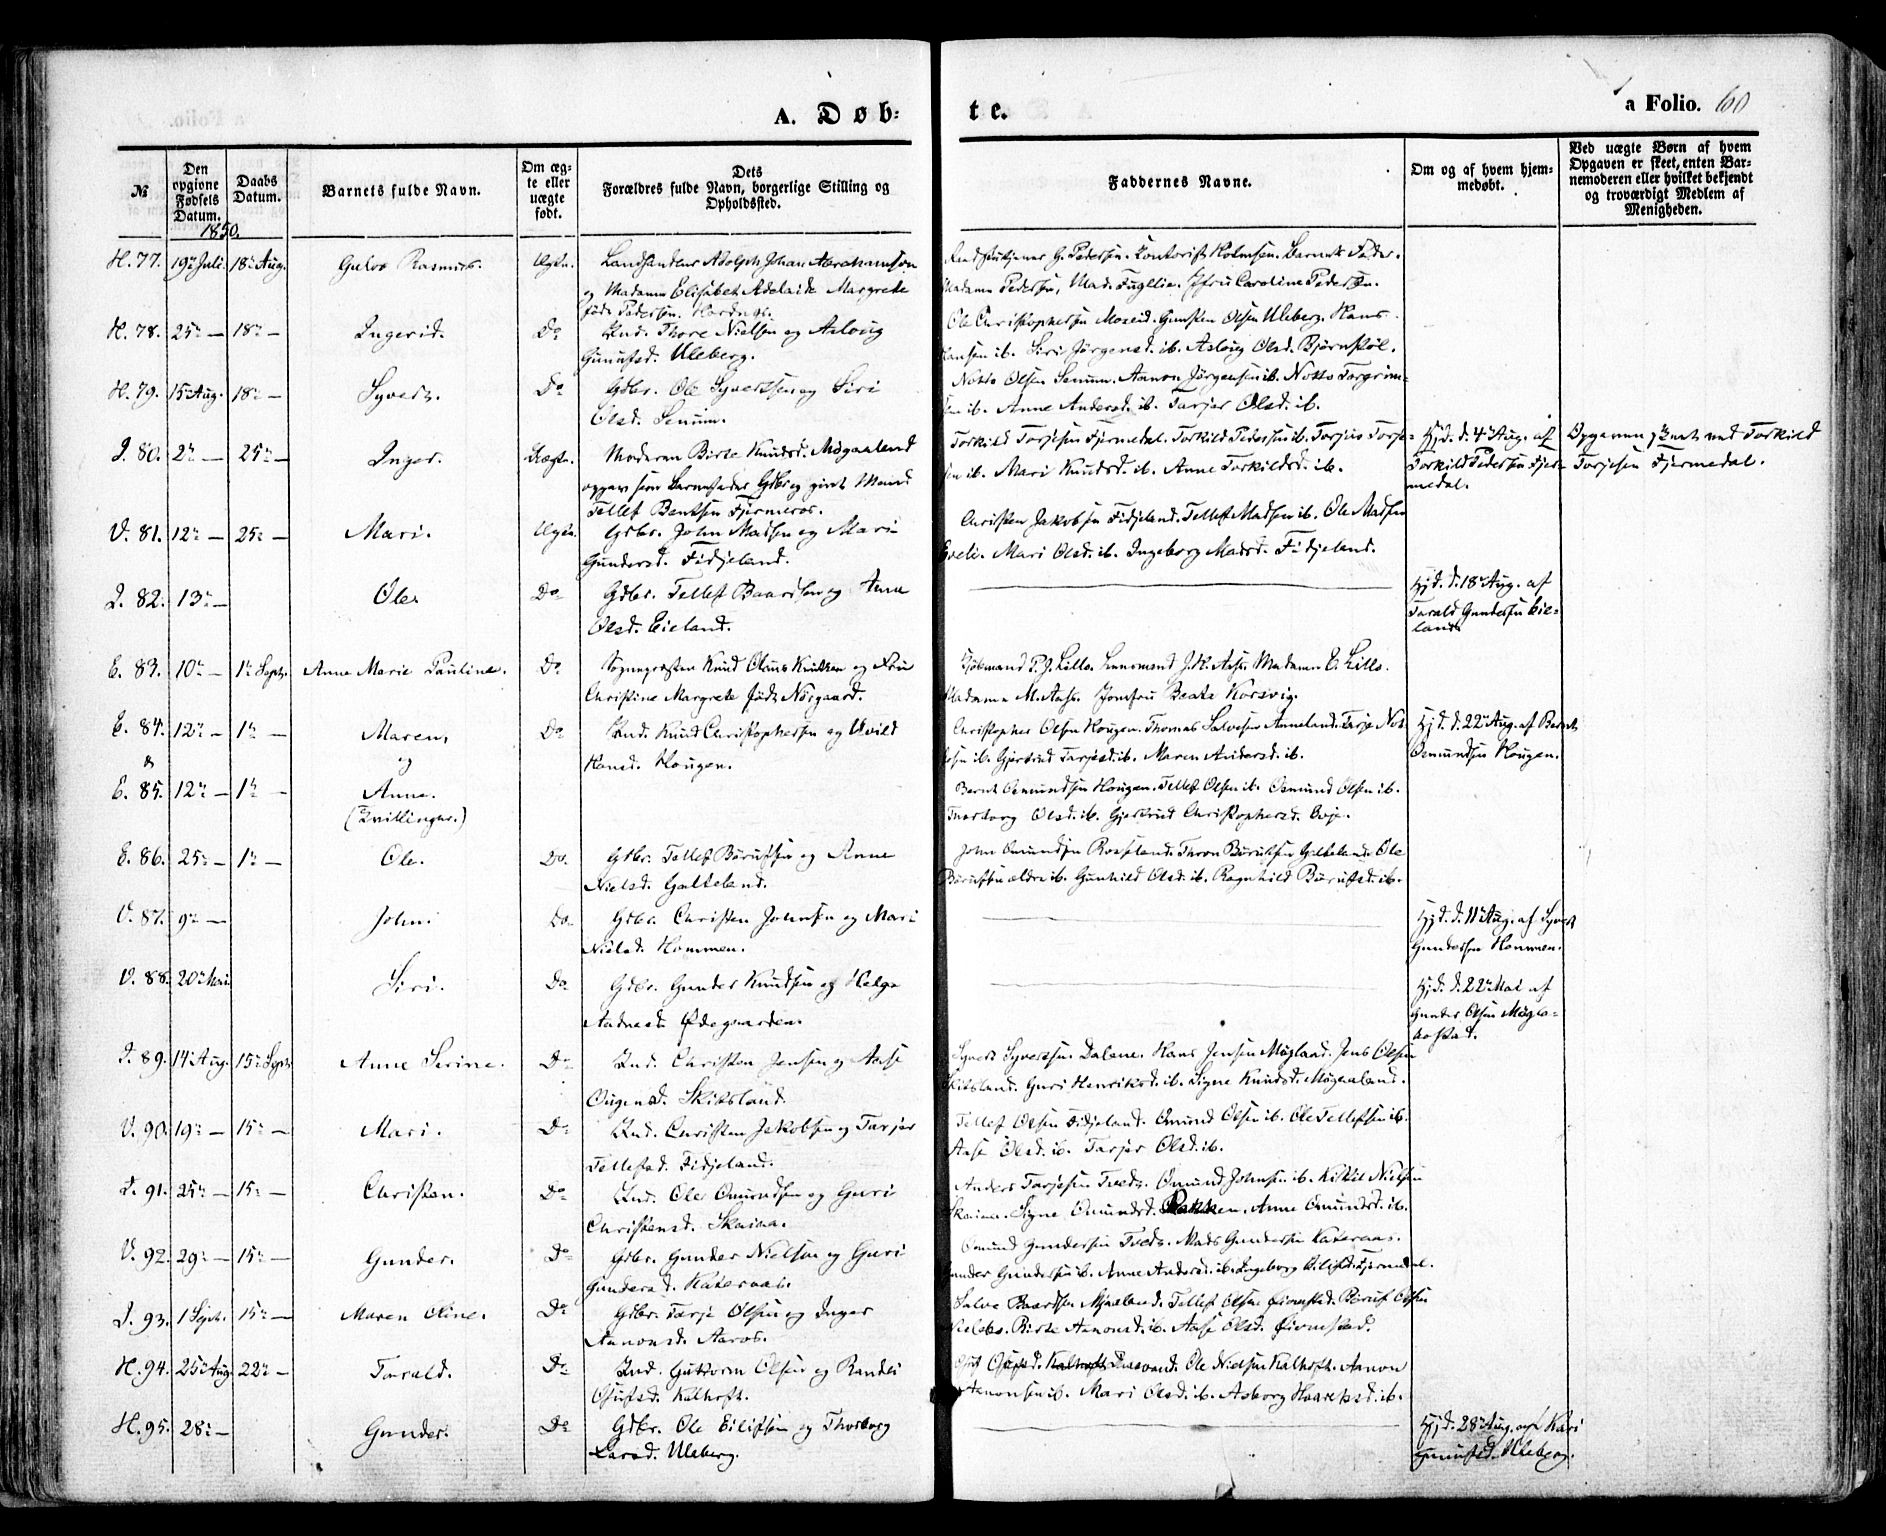 A. Døb:
te.
a Folio. 60
№
Den opgivne Fødsels Datum.
Daabs Datum.
Barnets fulde Navn.
Om ægte eller uægte født.
Dets Forældres fulde Navn, borgerlige Stilling og Opholdssted.
Faddernes Navne.
Om og af hvem hjemmedøbt.
Ved uægte Børn af hvem Opgaven er skeet, enten Barnemoderen eller hvilket bekjendt og troværdigt Medlem af Menigheden.
1850.
H. 77. 19de Juli. 18de Aug. Rasmus. Ægte. Landhandler Adolph Johan Abrahamson
og Madame Elisabet Adelaide Margrete
født Pedersen.
G. Pedersen. Kontorist Holmsen. Barnets Fader.
Madame Pedersen, Mad. Jfru Caroline Pedersen.
H. 78. 25de — 18de — Ingerid. Do Ind. Thore Nielsen og Asloug
Gunufsd. Uleberg.
Ole Christophersen Moseid. Gunsten Olsen Uleberg. Hans
Hansen ib. Siri Jørgensd. ib. Asloug Olsd. Bjørnstøl.
H. 79. 15de Aug. 18de — Syvert. Do Gdbr. Ole Syvertsen og Siri
Olsd. Senum.
Notto Olsen Senum. Aanon Jørgensen ib. Notto Torgrim-
sen ib. Anne Andersd. ib. Tarjer Olsd. ib.
I. 80. 2de — 25de — Inger. Uægte. Moderen Birte Knudsd. Møgaaland
opgav som Barnefader Gdbr. og givt Mand
Tellef Bentsen Fjermeros.
Torkild Torjesen Fjermedal. Torkild Pedersen ib. Torjus Torje-
sen ib. Mari Knudsd. ib. Anne Torkildsd. ib.
Hjd. d. 4de Aug. af
Torkild Pedersen Fjer-
medal.
Opgaven skeet ved Torkild
Torjesen Fjermedal.
V. 81. 12de — 25de — Mari. Ægte. Gdbr. John Madsen og Mari
Gundersd. Fidjeland.
Christen Jakobsen Fidjeland. Tellef Madsen ib. Ole Madsen
Mari Olsd. ib. Ingeborg Madsd. Fidjeland.
I. 82. 13de — Ole. Do Gdbr. Tellef Baardsen og Anne
Olsd. Eieland.
Hjd. d. 18de Aug. af
Tarald Gundersen Eie-
land.
E. 83. 10de — 1ste Septr. Anne Marie Pauline. Do Sognepræsten Knud Olaus Knutzen og Fru
Christine Margrete født Nørgaard.
P. J. Lillo. Lensmand Madame E. Lillo.
Madame M. Jomfru Beate Korsvig.
E. 84. 12de — 1ste — Maren, Do Ind. Knud Christophersen og
Hansd. Hougen.
Christopher Olsen Hougen. Thomas Salvesen Anneland. Tarje Not-
ib. Gjertrud Tarjesd. ib. Maren Andersd. ib.
Hjd. d. 22de Aug. af Bernt
Osmundsen Hougen.
&
og
E. 85. 12de — 1ste — Anne.
(Tvillinger.)
Bernt Osmundsen Hougen. Tellef Olsen ib. Osmund Olsen ib.
Olsd. ib. Gjertrud Christophersd. Evje.
E. 86. 25de — 1ste — Ole. Do. Gdbr. Tellef Børufsen og Anne
Nielsd. Galteland.
John Omundsen Rosseland. Thron Børufsen Galteland. Ole
Børufsen ældre ib. Gunhild Olsd. ib. Ragnhild Børufsd. ib.
V. 87. 9de — John. Do. Gdbr. Christen Johnsen og Mari
Nielsd. Hommen.
Hjd. d. 11te Aug. af Syvert
Gundersen Hommen.
V. 88. 20de Mai. Siri. Do Gdbr. Gunder Knudsen og Helge
Ødegaarden.
Hjd. d. 22de Mai af
Gunder Olsen
I. 89. 14de Aug. 15de Septr. Anne Serine. Do Ind. Christen Jensen og Aase
Ougensd. Skibsland.
Syvert Syvertsen Dalene. Hans Jensen Møgland. Jens Olsen
Skibsland. Guri Henriksd. ib. Signe Knudsd. Møgaaland.
V. 90. 19de — 15de — Mari. Do Ind. Christen Jakobsen og Tarjer
Tellefsd. Fidjeland.
Tellef Olsen Fidjeland. Omund Olsen ib. Ole Tellefsen ib.
Aase Olsd. ib. Tarjer Olsd. ib.
I. 91. 25de — 15de — Christen. Do Ind. Ole Omundsen og Guri
Christensd. Skaiaa.
Anders Tarjesen Tvedt. Omund Johnsen ib. Kittil Nielsen
Skaiaa. Signe Omundsd. Anne Omundsd. ib.
V. 92. 29de — 15de — Gunder. Do Gdbr. Gunder Nielsen og Guri
Gundersd. Kateraas.
Omund Gundersen Tvedt. Mads Gundersen Kateraas.
Gunder Gundersen ib. Anne Andersd. ib. Ingeborg Fjermedal.
I. 93. 1 Septr. 15de — Maren Oline. Do Gdbr. Tarje Olsen og Inger
Aanonsd. Aaros.
Salve Baardsen Tellef Olsen Øvrestad. Børuf Olsen
Birte Aanonsd. ib. Aase Olsd. Øvrestad.
H. 94. 25de Aug. 22de — Tarald. Do Ind. Guttorm Olsen og Randi
Gjufsd. Kalhoft.
Ole Nielsen Kalhoft. Aanon
Aanonsen ib. Mari Olsd. ib. Asborg ib.
H. 95. 28de — Gunder. Do Gdbr. Ole Eilifsen og Thorborg
Larsd. Uleberg.
Hjd. 28de Aug. af Kari
Gunufsd. Uleberg.